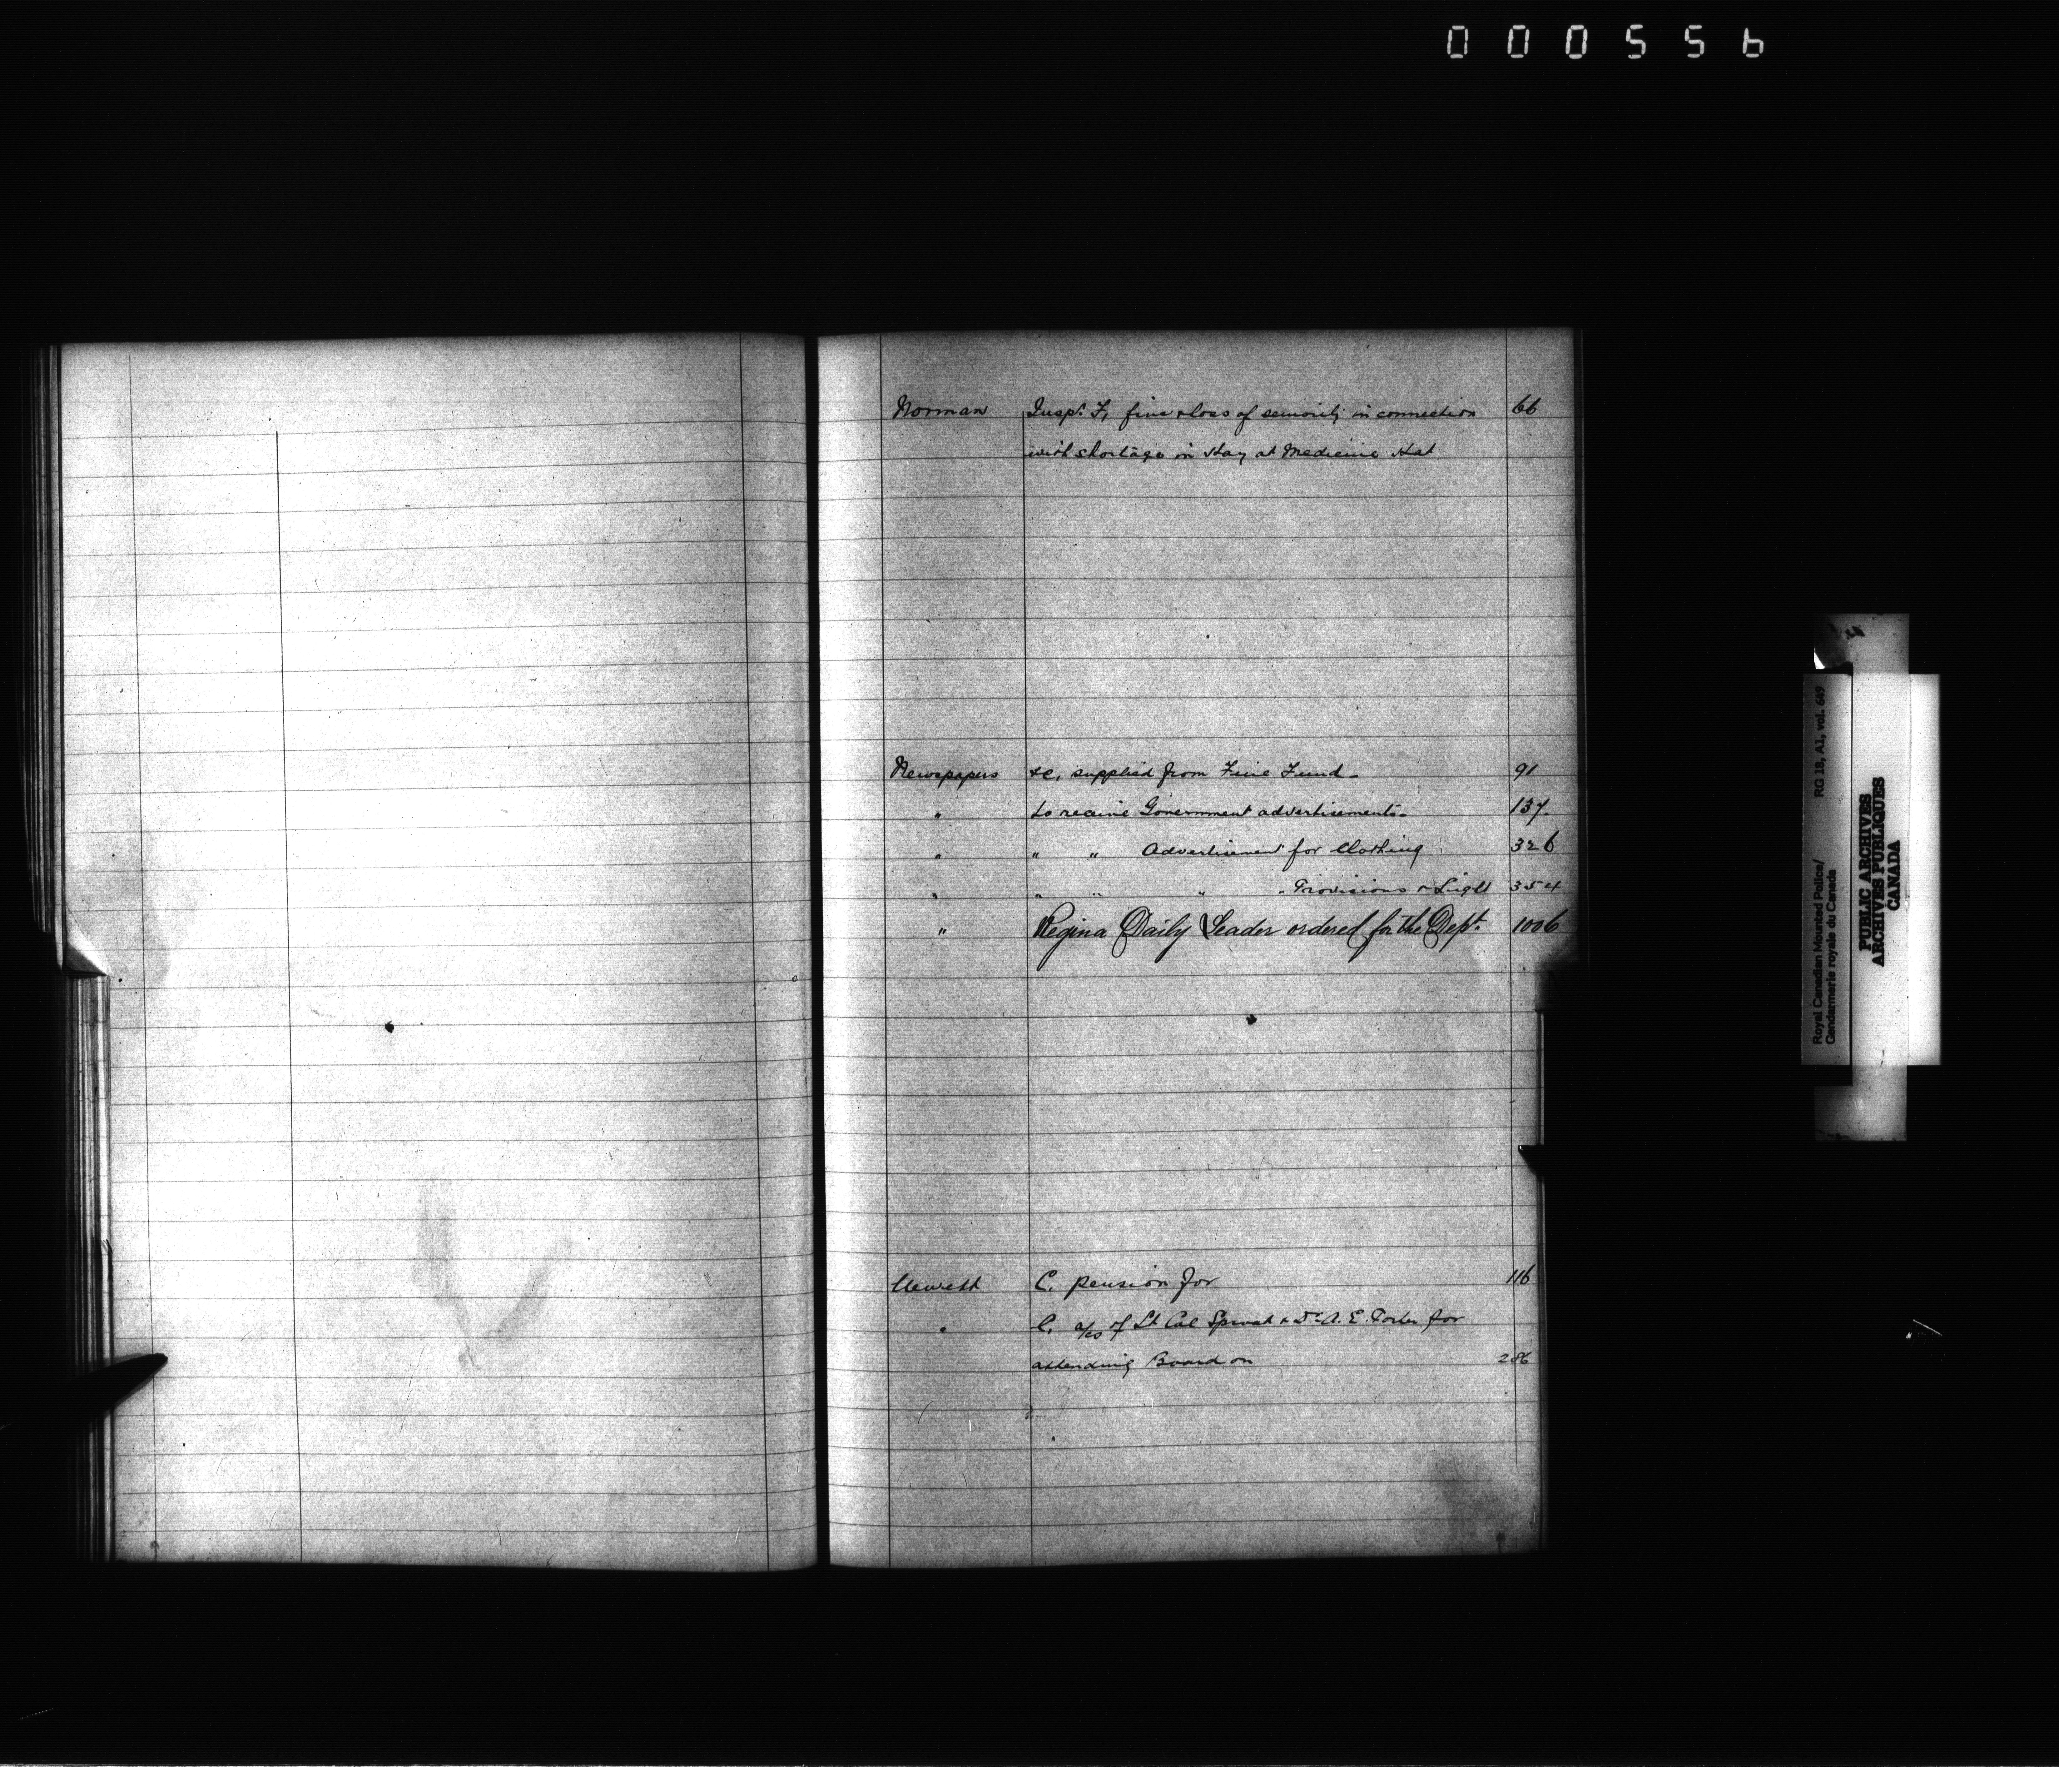 000556
Norman Insp. F, fine & loss of seniority in connection 66
with shortage in Hay at Medicine Hat
Newspapers &c, supplied from Fine Fund - 91
" to receive Government advertisements - 137
" " " Advertisement for Clothing 326
" " " " " Provisions & Light 354
" Regina Daily Leader ordered for the Dept. 1006
C. pension for 116
" C. a/cs of Lt Col & Dr A. E. for
attending Board on 286
Royal Canadian Mounted Police/ RG 18, A1, vol. 649
Gendarmerie royale du Canada
PUBLIC ARCHIVES
ARCHIVES PUBLIQUES
CANADA